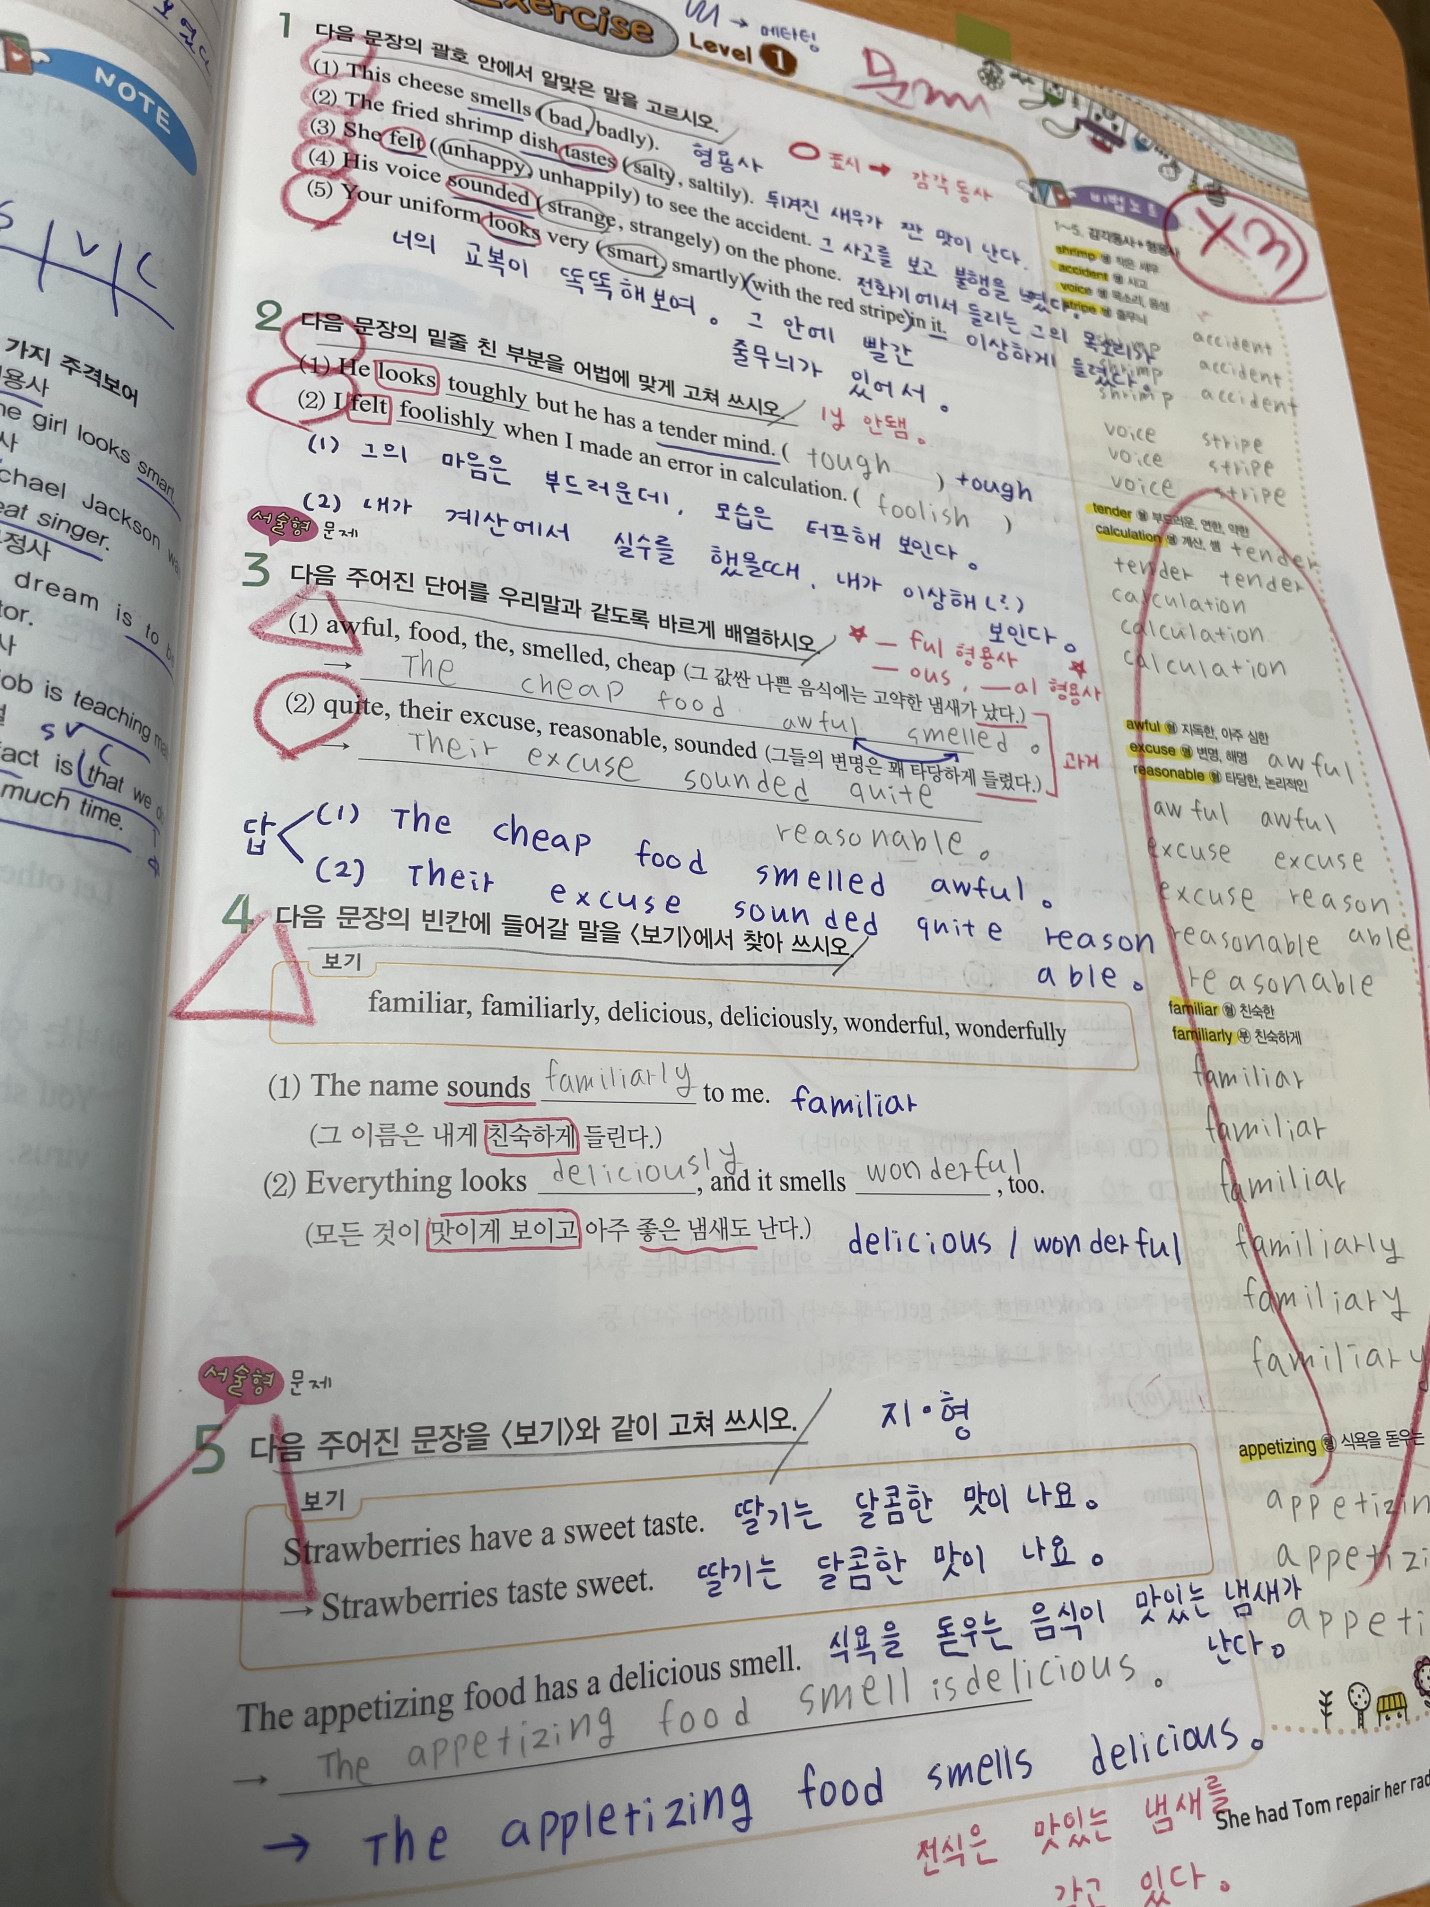 Exercise
Level 1
→ 메타팅
NOTE
1 다음 문장의 괄호 안에서 알맞은 말을 고르시오.
(1) This cheese smells (bad, badly).
형용사
표시 → 감각동사
(2) The fried shrimp dish tastes (salty, saltily).
튀겨진 새우가 짠 맛이 난다.
(3) She felt (unhappy, unhappily) to see the accident.
그 사고를 보고 불행을 느꼈다.
(4) His voice sounded (strange, strangely) on the phone.
전화기에서 들리는 그의 목소리가 이상하게 들렸다.
(5) Your uniform looks very (smart, smartly) (with the red stripe) in it.
너의 교복이 똑똑해보여. 그 안에 빨간
줄무늬가 있어서.
2 다음 문장의 밑줄 친 부분을 어법에 맞게 고쳐 쓰시오.
ly 안됨.
(1) He looks toughly but he has a tender mind. ( tough ) tough
(2) I felt foolishly when I made an error in calculation. ( foolish )
(1) 그의 마음은 부드러운데, 모습은 터프해 보인다.
(2) 내가 계산에서 실수를 했을때, 내가 이상해(?)
보인다.
서술형 문제
3 다음 주어진 단어를 우리말과 같도록 바르게 배열하시오.
— ful 형용사
— ous, —al 형용사
(1) awful, food, the, smelled, cheap (그 값싼 나쁜 음식에는 고약한 냄새가 났다.)
→ The cheap food awful smelled.
(2) quite, their excuse, reasonable, sounded (그들의 변명은 꽤 타당하게 들렸다.)
과거
→ Their excuse sounded quite
reasonable.
답
(1) The cheap food smelled awful.
(2) Their excuse sounded quite reason
able.
4 다음 문장의 빈칸에 들어갈 말을 〈보기〉에서 찾아 쓰시오.
보기
familiar, familiarly, delicious, deliciously, wonderful, wonderfully
(1) The name sounds familiarly to me. familiar
(그 이름은 내게 친숙하게 들린다.)
(2) Everything looks deliciously, and it smells wonderful, too.
(모든 것이 맛이게 보이고 아주 좋은 냄새도 난다.)
delicious / wonderful
서술형 문제
5 다음 주어진 문장을 〈보기〉와 같이 고쳐 쓰시오.
지·형
보기
Strawberries have a sweet taste. 딸기는 달콤한 맛이 나요.
→ Strawberries taste sweet. 딸기는 달콤한 맛이 나요.
The appetizing food has a delicious smell. 식욕을 돋우는 음식이 맛있는 냄새가
난다.
→ The appetizing food smell is delicious.
→ The appletizing food smells delicious.
맛있는 냄새를
갖고 있다.
She had Tom repair her rad
비법노트
x3
1~5. 감각동사+형용사
shrimp 명 작은 새우
accident 명 사고
voice 명 목소리, 음성
stripe 명 줄무늬
accident
shrimp accident
shrimp accident
voice stripe
voice stripe
voice stripe
tender 형 부드러운, 연한, 약한
calculation 명 계산, 셈
tender
tender tender
calculation
calculation
calculation
awful 형 지독한, 아주 심한
excuse 명 변명, 해명
reasonable 형 타당한, 논리적인
awful
awful awful
excuse excuse
excuse reason
reasonable able
reasonable
familiar 형 친숙한
familiarly 부 친숙하게
familiar
familiar
familiar
familiarly
familiary
familiary
appetizing 형 식욕을 돋우는
appetizin
appetizi
appeti
S V C
가지 주격보어
용사
he girl looks smart.
사
chael Jackson wa
eat singer.
정사
dream is to b
tor.
사
ob is teaching ma
s v c
act is that we d
much time.